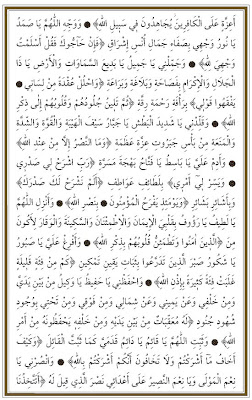 أَعِزَّةٍ عَلَى الْكَافِرِينَ يُجَاهِدُونَ فِي سَبِيلِ اللهِ﴾ ● وَوَجِّهِ اللَّهُمَّ يَا صَمَدُ
يَا نُورُ وَجْهِي بِصَفَاءِ جَمَالِ أُنْسِ إِشْرَاقِ ﴿فَإِنْ حَاجُّوكَ فَقُلْ أَسْلَمْتُ
وَجْهِيَ لِلَّهِ﴾ ● وَجَمِّلْنِي يَا جَمِيلُ يَا بَدِيعَ السَّمَاوَاتِ وَالْأَرْضِ يَا ذَا
الْجَلَالِ وَالْإِكْرَامِ بِفَصَاحَةِ وَبَلَاغَةِ وَبَرَاعَةِ ﴿وَاحْلُلْ عُقْدَةً مِنْ لِسَانِي
يَفْقَهُوا قَوْلِي﴾ بِرَأْفَةِ رَحْمَةِ رِقَّةِ ﴿ثُمَّ تَلِينُ جُلُودُهُمْ وَقُلُوبُهُمْ إِلَى ذِكْرِ
اللهِ﴾ ● وَقَلِّدْنِي يَا شَدِيدَ الْبَطْشِ يَا جَبَّارُ سَيْفَ الْهَيْبَةِ وَالْقُوَّةِ وَالشِّدَّةِ
وَالْمَنَعَةِ مِنْ بَأْسِ جَبَرُوتِ عِزَّةِ عَظَمَةِ ﴿وَمَا النَّصْرُ إِلَّا مِنْ عِنْدِ اللهِ﴾
● وَأَدِمْ عَلَيَّ يَا بَاسِطُ يَا فَتَّاحُ بَهْجَةَ مَسَرَّةِ ﴿رَبِّ اشْرَحْ لِي صَدْرِي
وَيَسِّرْ لِي أَمْرِي﴾ بِلَطَائِفِ عَوَاطِفِ ﴿أَلَمْ نَشْرَحْ لَكَ صَدْرَكَ﴾
وَبِأَشَائِرِ بَشَائِرِ ﴿وَيَوْمَئِذٍ يَفْرَحُ الْمُؤْمِنُونَ ● بِنَصْرِ اللهِ﴾ ● وَأَنْزِلِ اللَّهُمَّ
يَا لَطِيفُ يَا رَؤُوفُ بِقَلْبِي الْإِيمَانَ وَالْاِطْمِئْنَانَ وَالسَّكِينَةَ وَالْوَقَارَ لِأَكُونَ
مِنَ ﴿الَّذِينَ آمَنُوا وَتَطْمَئِنُّ قُلُوبُهُمْ بِذِكْرِ اللهِ﴾ ● وَأَفْرِغْ عَلَيَّ يَا صَبُورُ
يَا شَكُورُ صَبْرَ الَّذِينَ تَدَرَّعُوا بِثَبَاتِ يَقِينِ تَمْكِينِ ﴿كَمْ مِنْ فِئَةٍ قَلِيلَةٍ
غَلَبَتْ فِئَةً كَثِيرَةً بِإِذْنِ اللهِ﴾ ● وَاحْفَظْنِي يَا حَفِيظُ يَا وَكِيلُ مِنْ بَيْنِ يَدَيَّ
وَمِنْ خَلْفِي وَعَنْ يَمِينِي وَعَنْ شِمَالِي وَمِنْ فَوْقِي وَمِنْ تَحْتِي بِوُجُودِ
شُهُودِ جُنُودِ ﴿لَهُ مُعَقِّبَاتٌ مِنْ بَيْنِ يَدَيْهِ وَمِنْ خَلْفِهِ يَحْفَظُونَهُ مِنْ أَمْرِ
اللهِ﴾ ● وَثَبِّتِ اللَّهُمَّ يَا قَائِمُ يَا دَائِمُ قَدَمَيَّ كَمَا ثَبَّتَّ الْقَائِلَ ﴿وَكَيْفَ
أَخَافُ مَا أَشْرَكْتُمْ وَلَا تَخَافُونَ أَنَّكُمْ أَشْرَكْتُمْ بِاللهِ﴾ ● وَانْصُرْنِي يَا
نِعْمَ الْمَوْلَى وَيَا نِعْمَ النَّصِيرُ عَلَى أَعْدَائِي نَصْرَ الَّذِي قِيلَ لَهُ ﴿أَتَتَّخِذُنَا